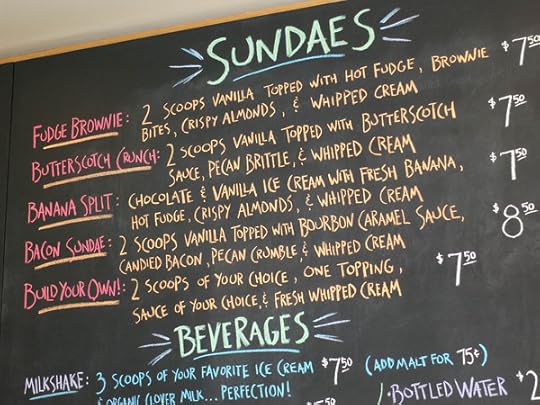 SUNDAES
FUDGE BROWNIE: 2 SCOOPS VANILLA TOPPED WITH HOT FUDGE, BROWNIE $7.50
BITES, CRISPY ALMONDS, & WHIPPED CREAM
BUTTERSCOTCH CRUNCH: 2 SCOOPS VANILLA TOPPED WITH BUTTERSCOTCH $7.50
SAUCE, PECAN BRITTLE, & WHIPPED CREAM
BANANA SPLIT: CHOCOLATE & VANILLA ICE CREAM WITH FRESH BANANA, $7.50
HOT FUDGE, CRISPY ALMONDS, & WHIPPED CREAM
BACON SUNDAE: 2 SCOOPS VANILLA TOPPED WITH BOURBON CARAMEL SAUCE, $8.50
CANDIED BACON, PECAN CRUMBLE & WHIPPED CREAM
BUILD YOUR OWN!: 2 SCOOPS OF YOUR CHOICE, ONE TOPPING, $7.50
SAUCE OF YOUR CHOICE, & FRESH WHIPPED CREAM
BEVERAGES
MILKSHAKE: 3 SCOOPS OF YOUR FAVORITE ICE CREAM $7.50 (ADD MALT FOR 75¢)
& ORGANIC CLOVER MILK... PERFECTION! • BOTTLED WATER $2